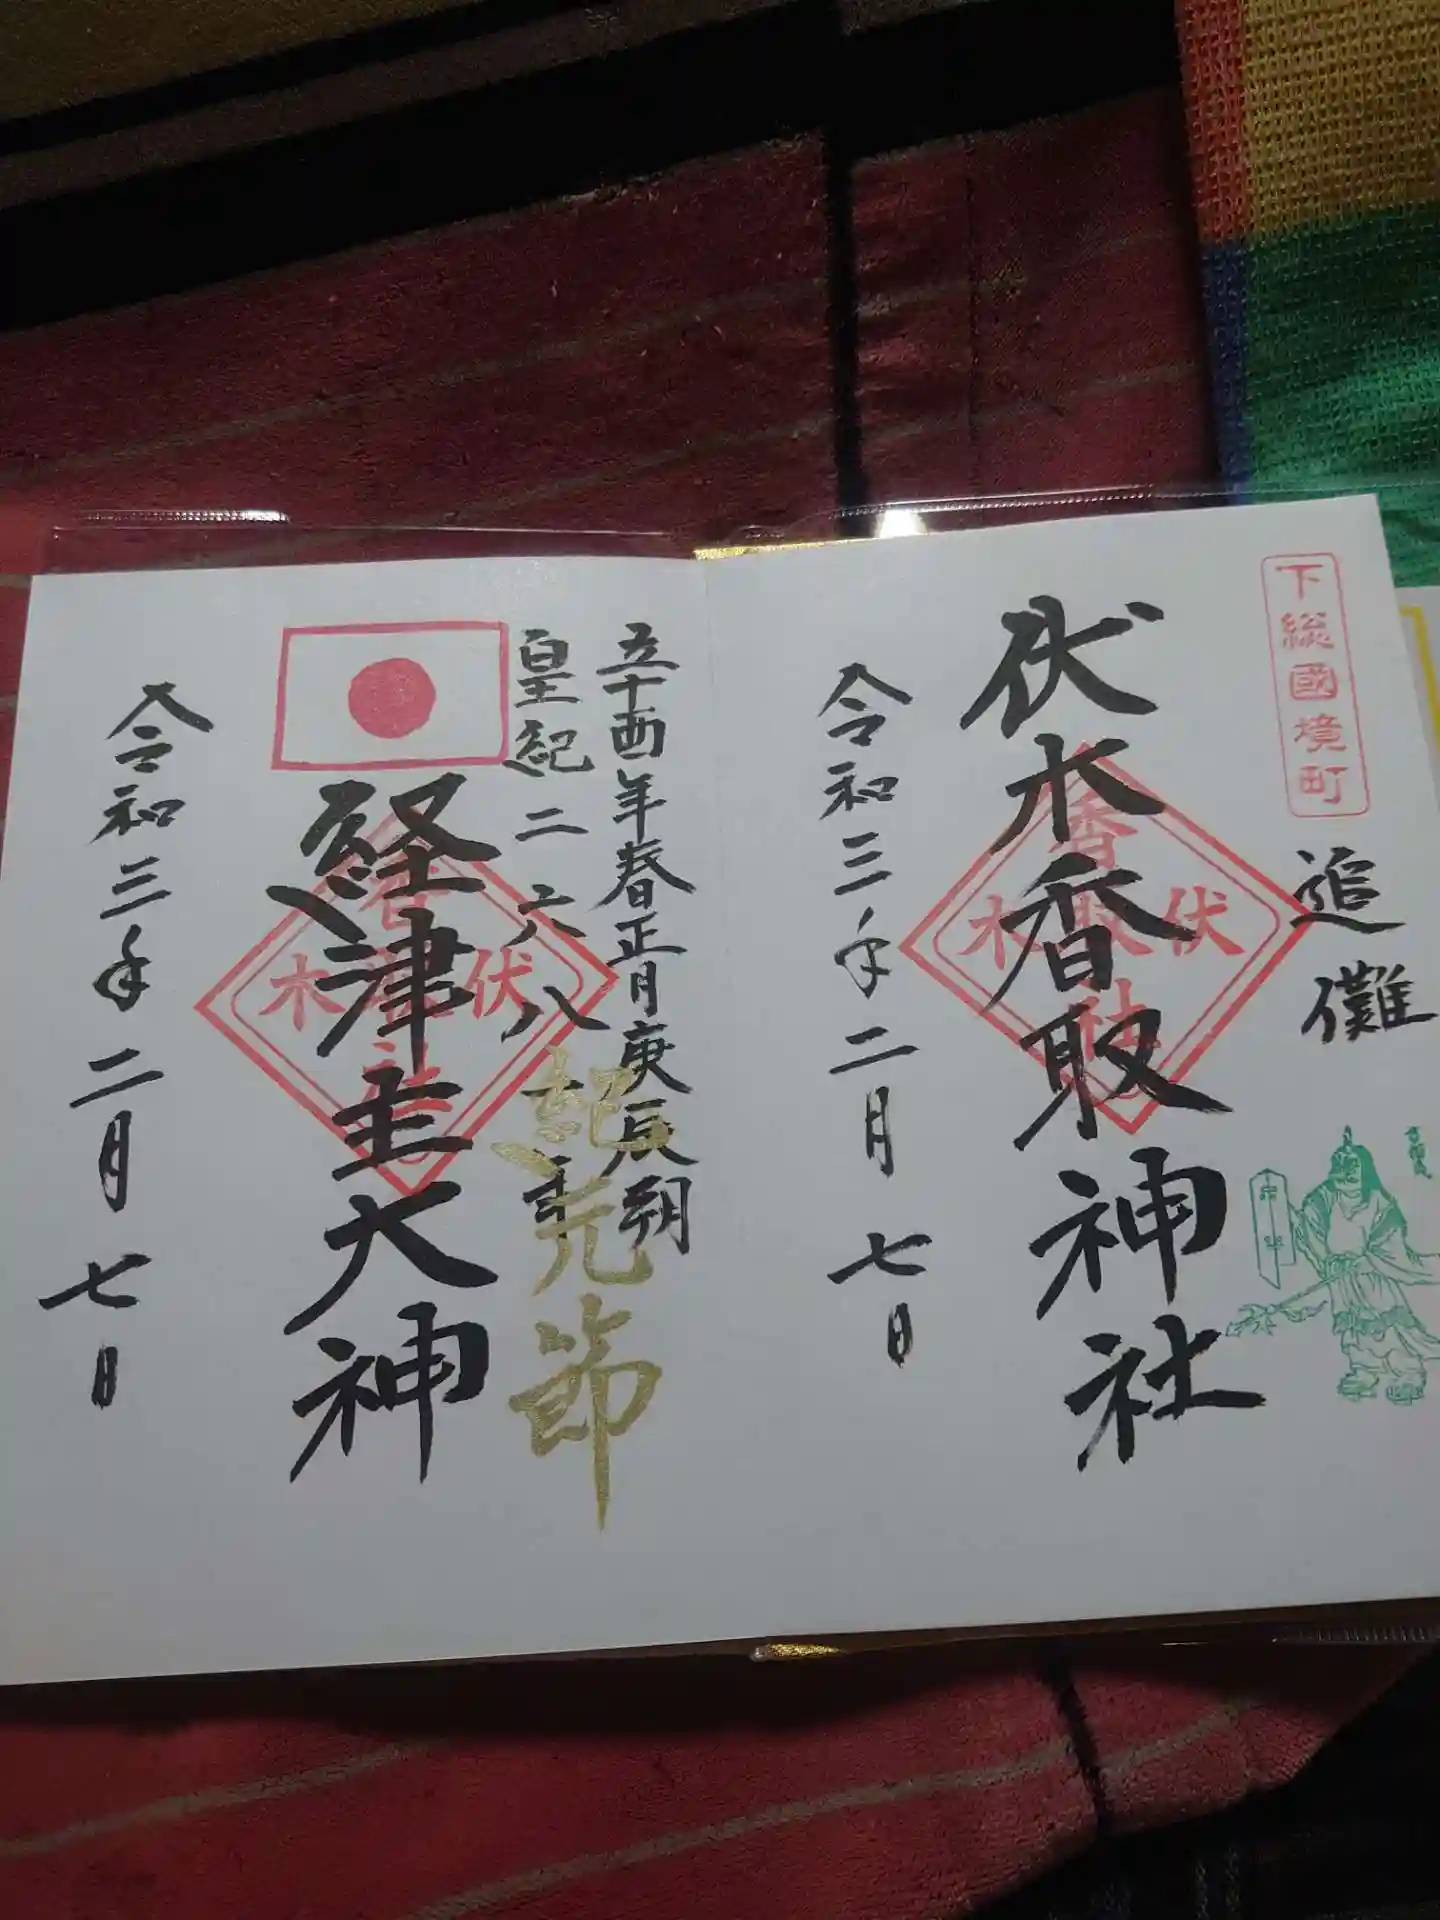 下総國境町
追儺
伏木香取神社
伏木
香取
神社
令和三年二月七日
辛酉年春正月庚辰朔
皇紀二六八一年
紀元節
経津主大神
伏木
令和三年二月七日